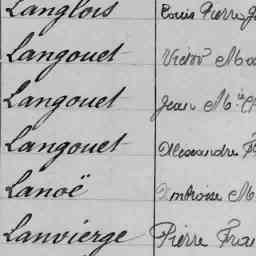 Langlois Louis Pierre
Langouet Victor
Langouet Jean M
Langouet Alexandre
Lanoë Ambroise M
Lanvierge Pierre Fra